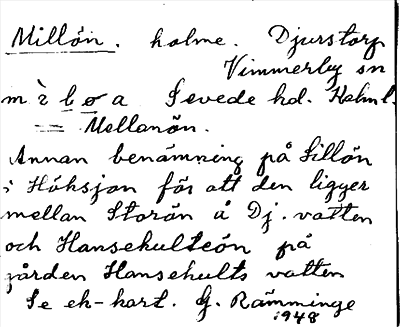 Millön. holme. Djurstorp
Vimmerby sn
m ì l ø a Sevede hd. Kalm l.
= Mellanön.
Annan benämning på Lillön
i Höksjön för att den ligger
mellan Storön å Dj. vatten
och Hansehulteön på
gården Hansehults vatten
Se ek-kart. G. Rämminge
1948